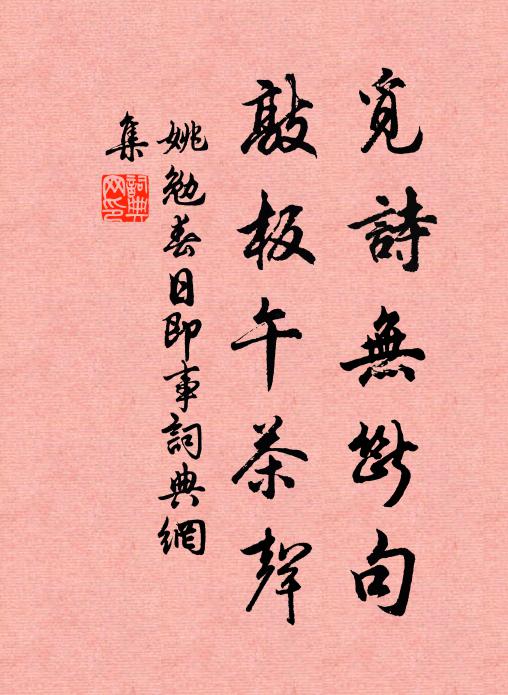 覓詩無斷句
敲板午茶聲
姚勉春日即事詞典網
集
詞典
网印